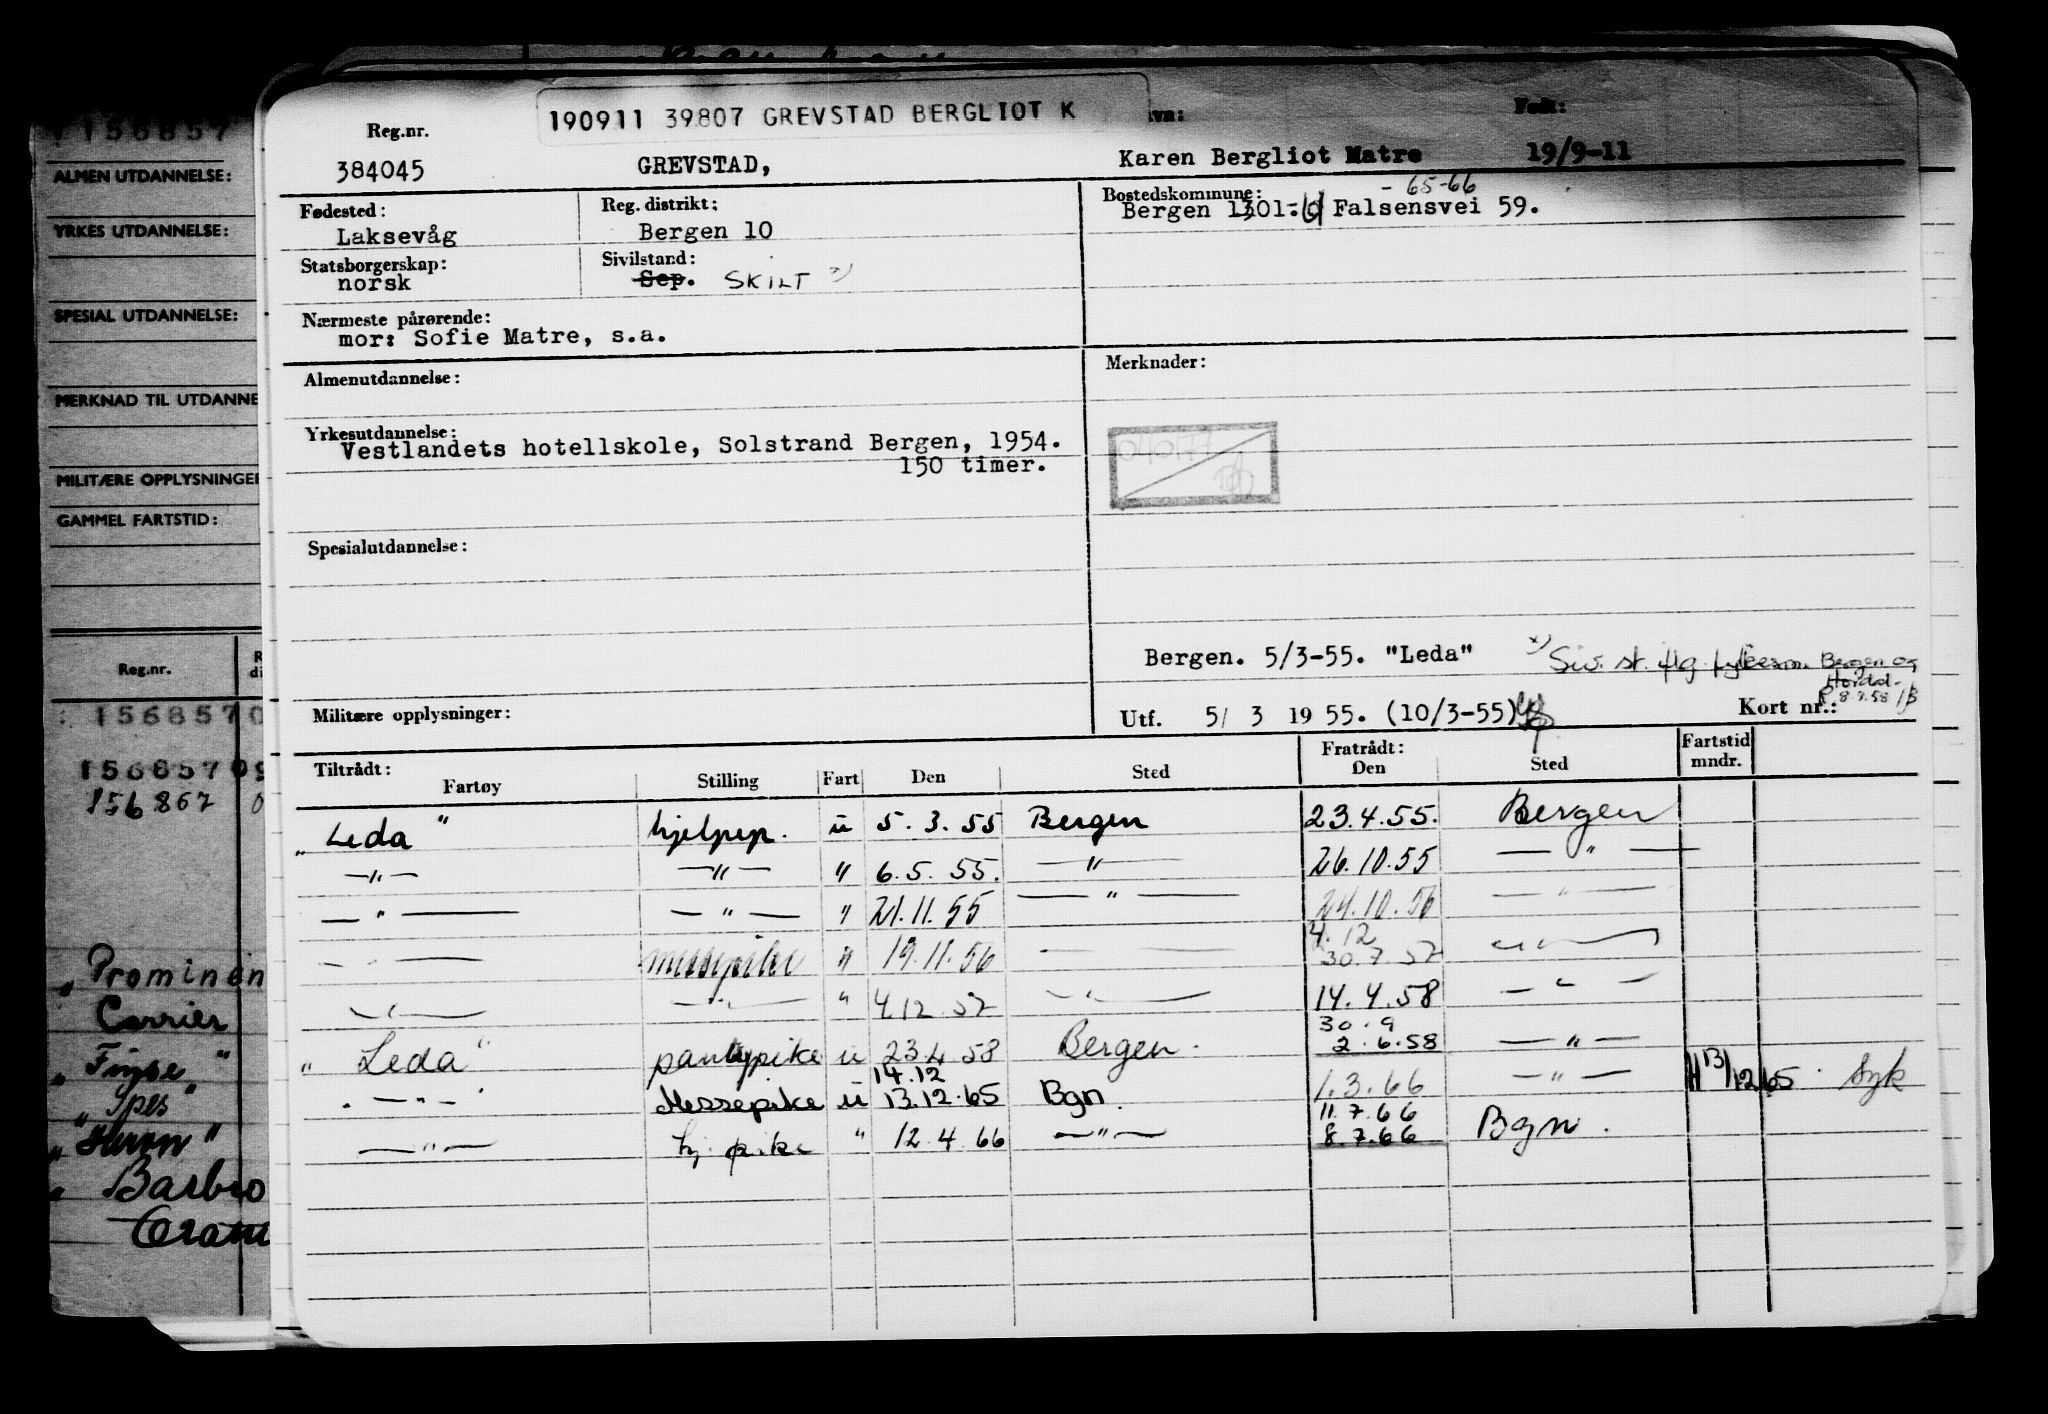 190911 39807 GREVSTAD BERGLIOT K
Reg.nr. Født:
384045 GREVSTAD, Karen Bergliot Matre 19/9-11
Fødested: Reg. distrikt: Bostedskommune: - 65-66
Laksevåg Bergen 10 Bergen 1301. Falsensvei 59.
Statsborgerskap: Sivilstand:
norsk Sep. SKILT x)
Nærmeste pårørende:
mor: Sofie Matre, s.a.
Almenutdannelse: Merknader:
Yrkesutdannelse:
Vestlandets hotellskole, Solstrand Bergen, 1954.
150 timer.
Spesialutdannelse:
Bergen. 5/3-55. "Leda" x) Siv. st. flg. fylkesm. Bergen og
Hordal.
8.7.58
Militære opplysninger: Utf. 5/ 3 19 55. (10/3-55) Kort nr.:
Tiltrådt: Fratrådt: Fartstid
Fartøy Stilling Fart Den Sted Den Sted mndr.
"Leda" hjelpep. u 5.3.55 Bergen 23.4.55. Bergen
—"— —"— " 6.5.55. —"— 26.10.55 —"—
—"— —"— " 21.11.55 —"— 24.10.56 —"—
4.12
—"— messepike " 19.11.56 —"— 30.7.57 —"—
—"— —"— " 4.12.57 —"— 14.4.58 —"—
30.9
"Leda" pantrypike u 23.4.58 Bergen. 2.6.58 —"—
14.12
—"— Messepike u 13.12.65 Bgn. 1.3.66 —"— H 13/12 65. syk
11.7.66
—"— hj. pike " 12.4.66 —"— 8.7.66 Bgn.
156857
ALMEN UTDANNELSE:
YRKES UTDANNELSE:
SPESIAL UTDANNELSE:
MERKNAD TIL UTDANNE
MILITÆRE OPPLYSNINGER
GAMMEL FARTSTID:
Reg.nr.
: 1568570
15685709
156867 0
"Prominen
Carrier
"
"
"
" Barbro